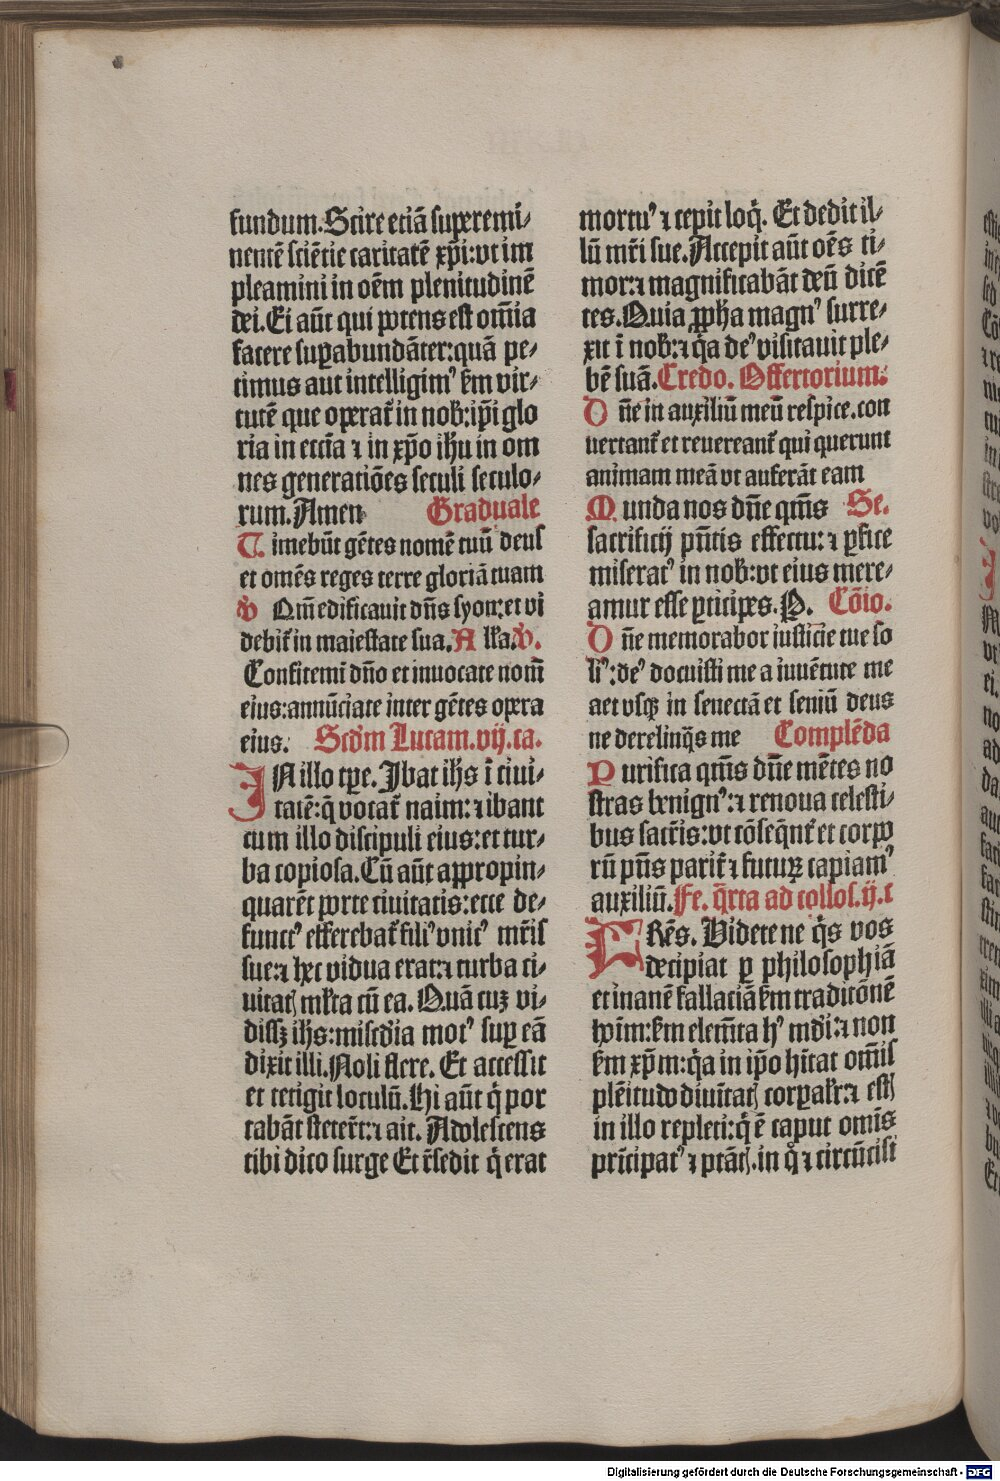 fundum. Scire eciā suꝑemi-
nentē sciētie caritatē xp̄i: vt im
pleamini in oēm plenitudinē
dei. Ei aūt qui potens est om̄ia
facere suꝑabundāter: quā pe-
timus aut intelligimꝰ ẜm vir-
tutē que operat᷑ in nob̄: ip̄i glo
ria in ecc̄ia ⁊ in xp̄o ih̄u in om
nes generatiōes seculi seculo-
rum. Amen Graduale
Timebūt gētes nomē tuū deus
et omēs reges terre gloriā tuam
℣ Qm̄ edificauit dn̄s syon: et vi
debit᷑ in maiestate sua. A ll'a. ℣.
Confitemī dn̄o et inuocate nom̄
eius: annūciate inter gētes opera
eius. Scd'm Lucam. vij. ca.
IN illo tꝑe. Ibat ih̄s ī ciui-
tatē: q̄ vocat᷑ naim: ⁊ ibant
cum illo discipuli eius: et tur-
ba copiosa. Cū aūt appropin-
quarēt porte ciuitatis: ecce de-
functꝰ efferebat᷑ filiꝰ vnicꝰ mr̄is
sue: ⁊ hec vidua erat: ⁊ turba ci-
uitatꝭ ml̕ta cū ea. Quā cuꝫ vi-
dissꝫ ih̄s: mis̄cdia motꝰ suꝑ eā
dixit illi. Noli flere. Et accessit
et tetigit loculū. Hi aūt q̇ por
tabāt steter̄t: ⁊ ait. Adolescens
tibi dico surge Et r̄sedit q̇ erat
mortuꝰ ⁊ cepit loq̇. Et dedit il-
lū mr̄i sue. Accepit aūt oēs ti-
mor: ⁊ magnificabāt deū dicē
tes. Quia ꝓpha magnꝰ surre-
xit ī nob̄: ⁊ q̇a deꝰ visitauit ple-
bē suā. Credo. Offertorium.
Dn̄e in auxiliū meū respice. con
uertant᷑ et reuereant᷑ qui querunt
animam meā vt auferāt eam
Munda nos dn̄e qm̄s Se.
sacrificij pn̄tis effectu: ⁊ ꝑfice
miseratꝰ in nob̄: vt eius mere-
amur esse ꝑticipes. P. Cōio.
Dn̄e memorabor iusticie tue so
liꝰ: deꝰ docuisti me a iuuētute me
a et vsqꝫ in senectā et seniū deus
ne derelinq̄s me Complēda
Purifica qm̄s dn̄e mētes no
stras benignꝰ: ⁊ renoua celesti-
bus sacr̄is: vt cōseq̄nt᷑ et corpo
rū pn̄s parit᷑ ⁊ futuꝝ capiamꝰ
auxiliū. Fe. q̄rta ad collos. ij. c
FRēs. Videte ne q̇s vos
decipiat ꝑ philosophiā
et inanē fallaciā ẜm traditōnē
hoīm: ẜm elem̄ta hꝰ mūdi: ⁊ non
ẜm xp̄m: q̇a in ip̄o hītat om̄is
plēitudo diuīitatꝭ corꝑalr̄: ⁊ estꝭ
in illo repleti: q̇ ē caput omīs
prīcipatꝰ ⁊ ptātꝭ. in q̊ ⁊ circūcisi
Digitalisierung gefördert durch die Deutsche Forschungsgemeinschaft - DFG